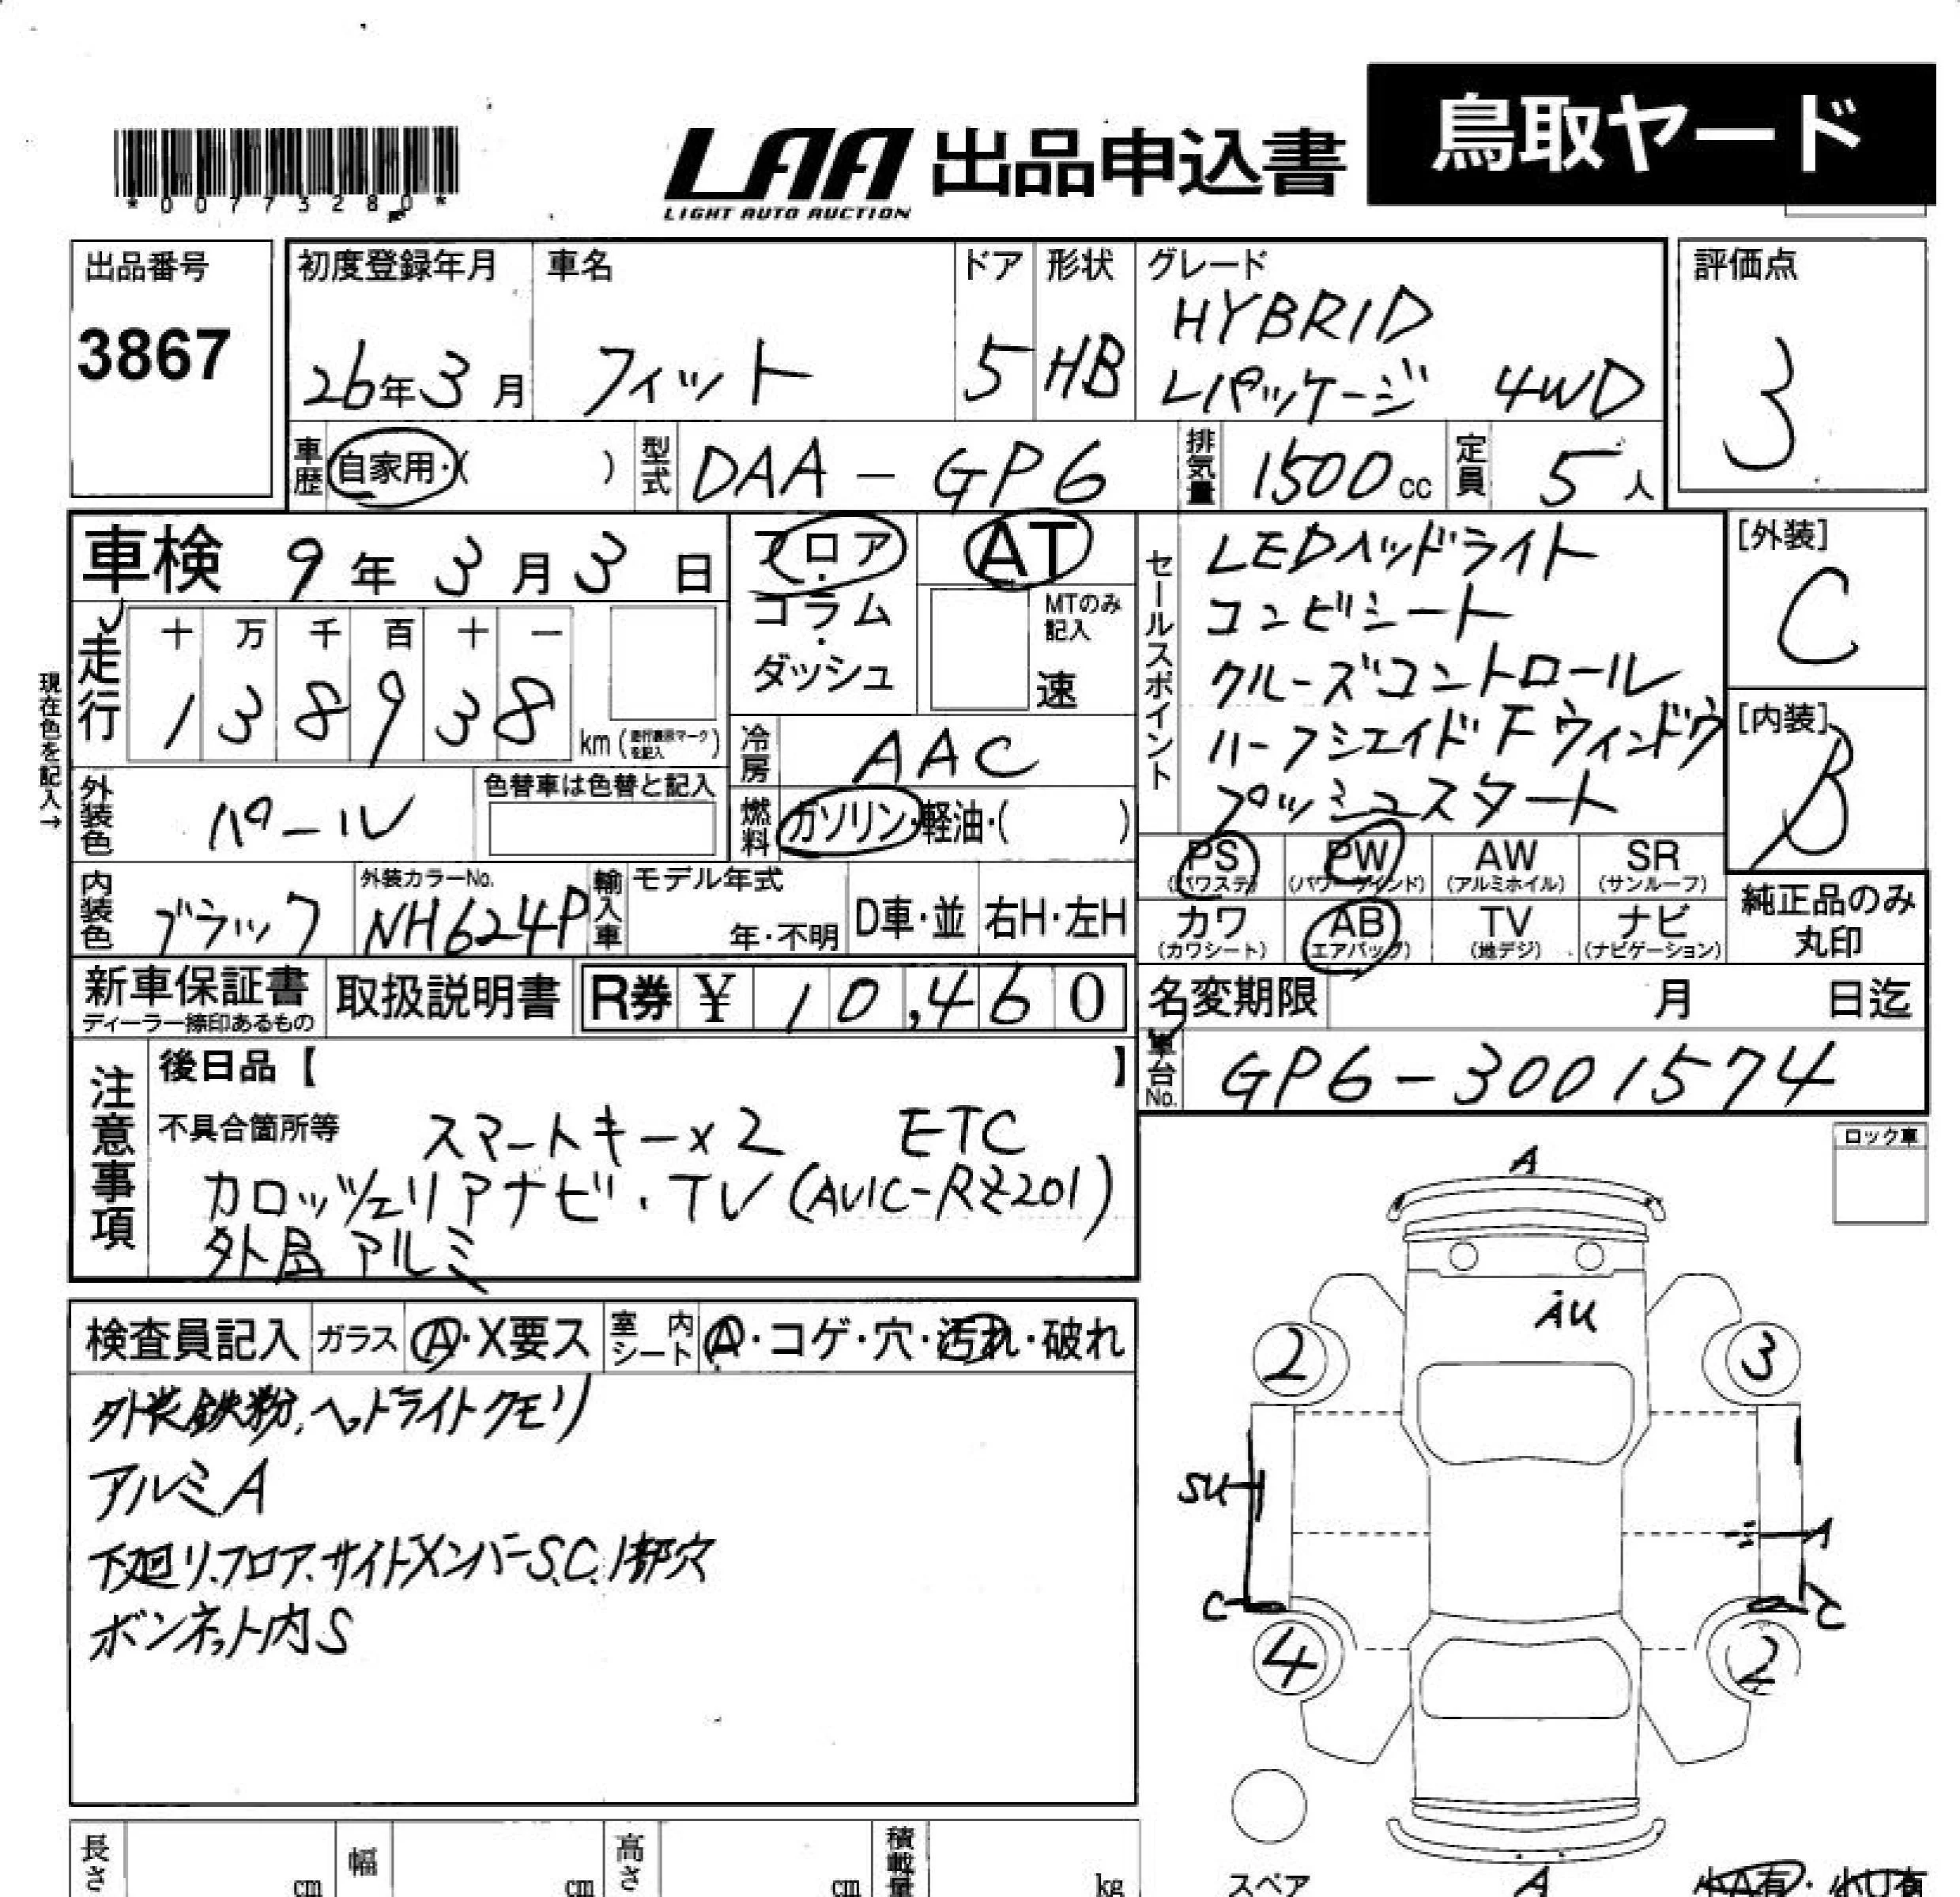 鳥取ヤード
LAA 出品申込書
LIGHT AUTO AUCTION
*00773280*
出品番号
3867
初度登録年月
26年3月
車名
フィット
ドア
5
形状
HB
グレード
HYBRID
Lパッケージ 4WD
評価点
3
車歴
自家用・( )
型式
DAA-GP6
排気量
1500cc
定員
5人
車検 9年3月3日
フロア・コラム・ダッシュ
AT
MTのみ記入
速
セールスポイント
LEDヘッドライト
コンビシート
クルーズコントロール
ハーフシェイドFウィンドウ
プッシュスタート
[外装]
C
[内装]
B
現在色を記入→
走行
十 万 千 百 十 一
1 3 8 9 3 8
km(走行表示マークを記入)
冷房
AAC
燃料
ガソリン・軽油・( )
外装色
パール
色替車は色替と記入
内装色
ブラック
外装カラーNo.
NH624P
輸入車
モデル年式
年・不明
D車・並
右H・左H
PS(パワステ) PW(パワーウインド) AW(アルミホイル) SR(サンルーフ)
カワ(カワシート) AB(エアバッグ) TV(地デジ) ナビ(ナビゲーション)
純正品のみ丸印
新車保証書
ディーラー捺印あるもの
取扱説明書
R券 ¥10,460
名変期限 月 日迄
車台No.
GP6-3001574
注意事項
後日品【 】
不具合箇所等
スマートキー×2 ETC
カロッツェリアナビ・TV(AVIC-RZ201)
外品アルミ
ロック車
検査員記入
ガラス
A・X要ス
室内シート
A・コゲ・穴・汚れ・破れ
外装鉄粉、ヘッドライトクモリ
アルミA
下廻り、フロア、サイドメンバーS.C.1部穴
ボンネット内S
A
AU
2
3
SU
A
C
C
4
2
スペア
A
長さ cm
幅 cm
高さ cm
積載量 kg